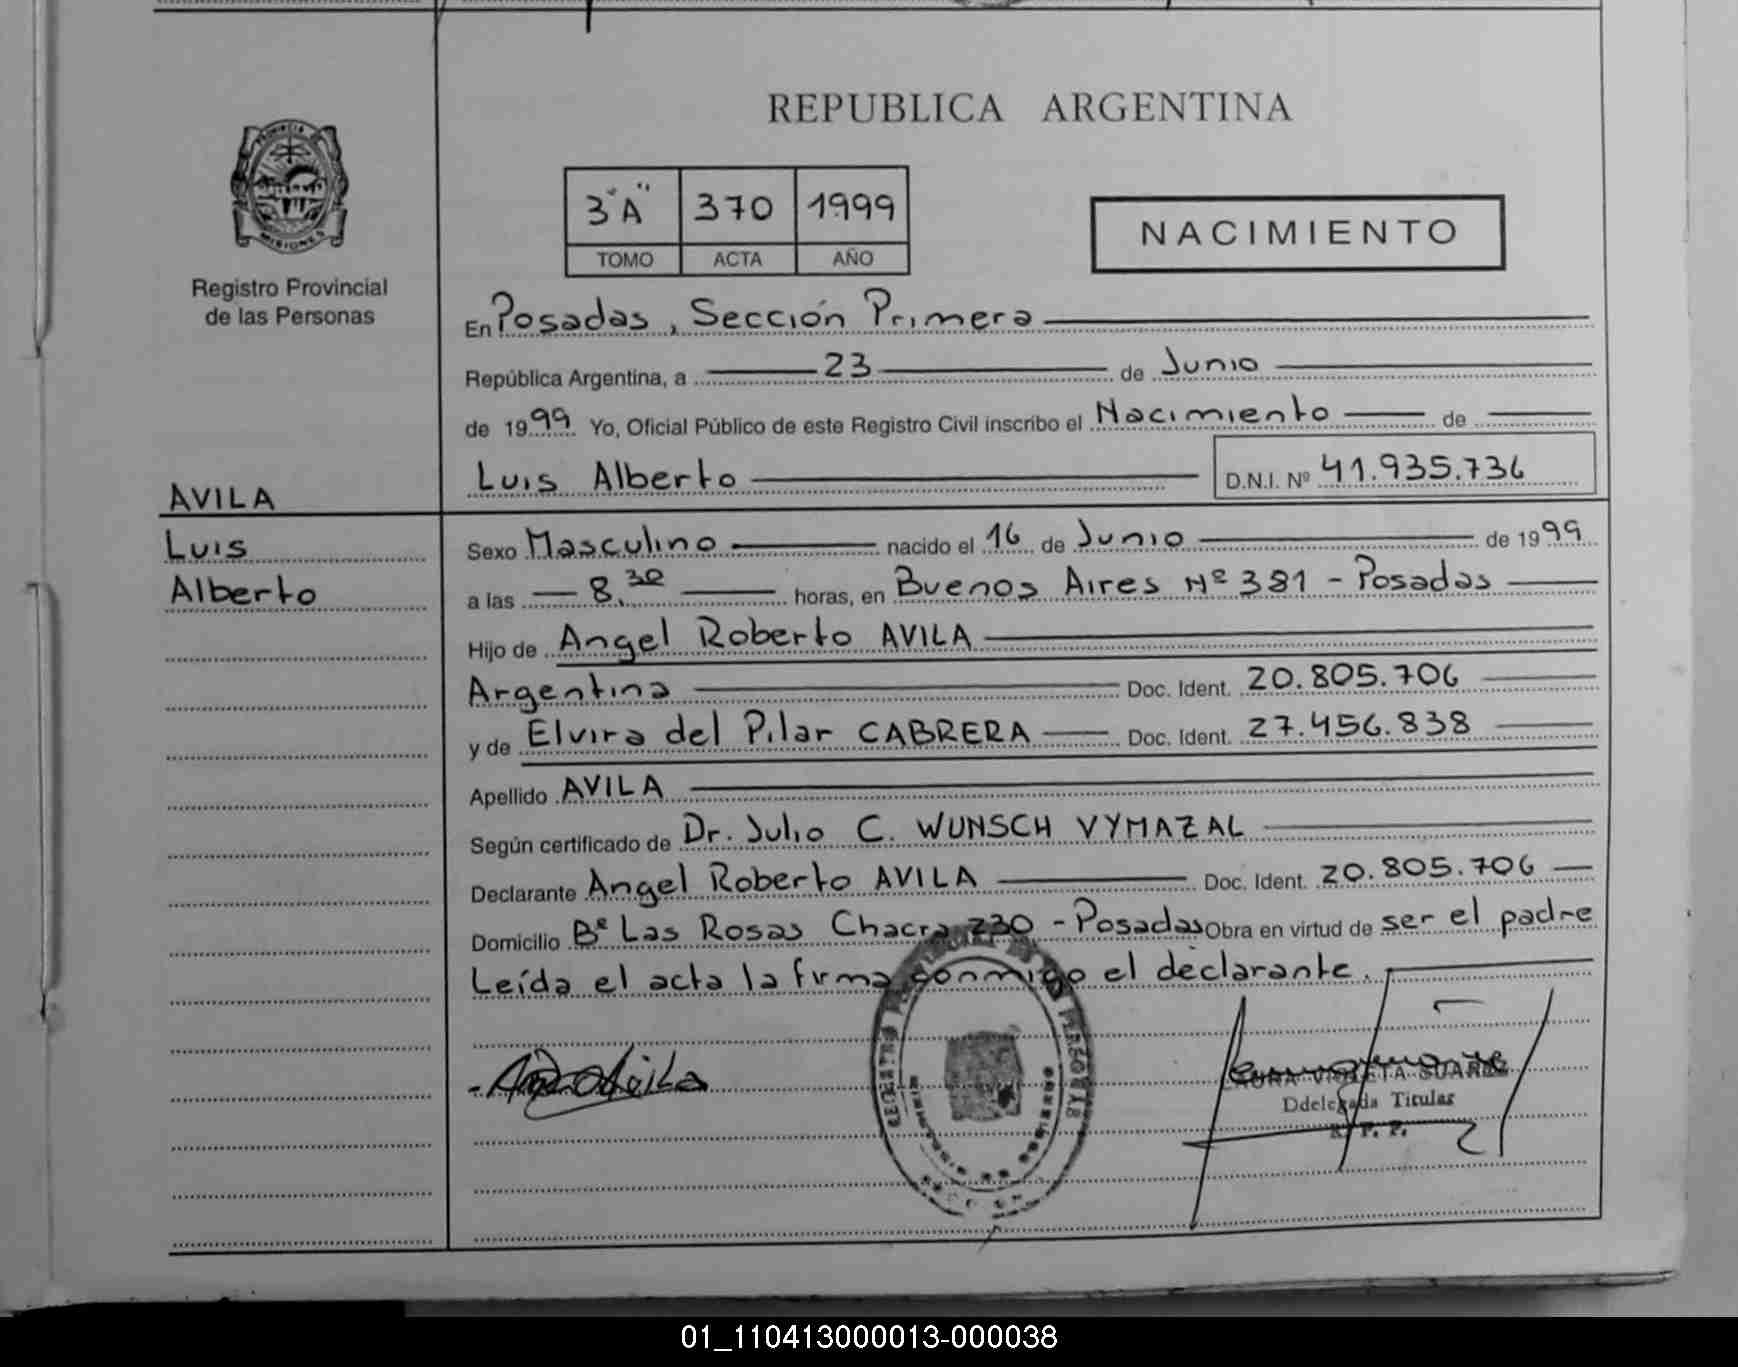 REPUBLICA ARGENTINA
PROVINCIA
MISIONES
Registro Provincial
de las Personas
3 "A" 370 1999
TOMO ACTA AÑO
NACIMIENTO
En Posadas, Sección Primera
República Argentina, a 23 de Junio
de 1999 Yo, Oficial Público de este Registro Civil inscribo el Nacimiento de
Luis Alberto D.N.I. Nº 41.935.736
AVILA
Luis
Alberto
Sexo Masculino nacido el 16 de Junio de 1999
a las 8,30 horas, en Buenos Aires Nº 381 - Posadas
Hijo de Angel Roberto AVILA
Argentina Doc. Ident. 20.805.706
y de Elvira del Pilar CABRERA Doc. Ident. 27.456.838
Apellido AVILA
Según certificado de Dr. Julio C. WUNSCH VYMAZAL
Declarante Angel Roberto AVILA Doc. Ident. 20.805.706
Domicilio Bº Las Rosas Chacra 230 - Posadas Obra en virtud de ser el padre
Leída el acta la firma conmigo el declarante.
VIOLETA SUAREZ
Ddelegada Titular
R. P. P.
01_110413000013-000038